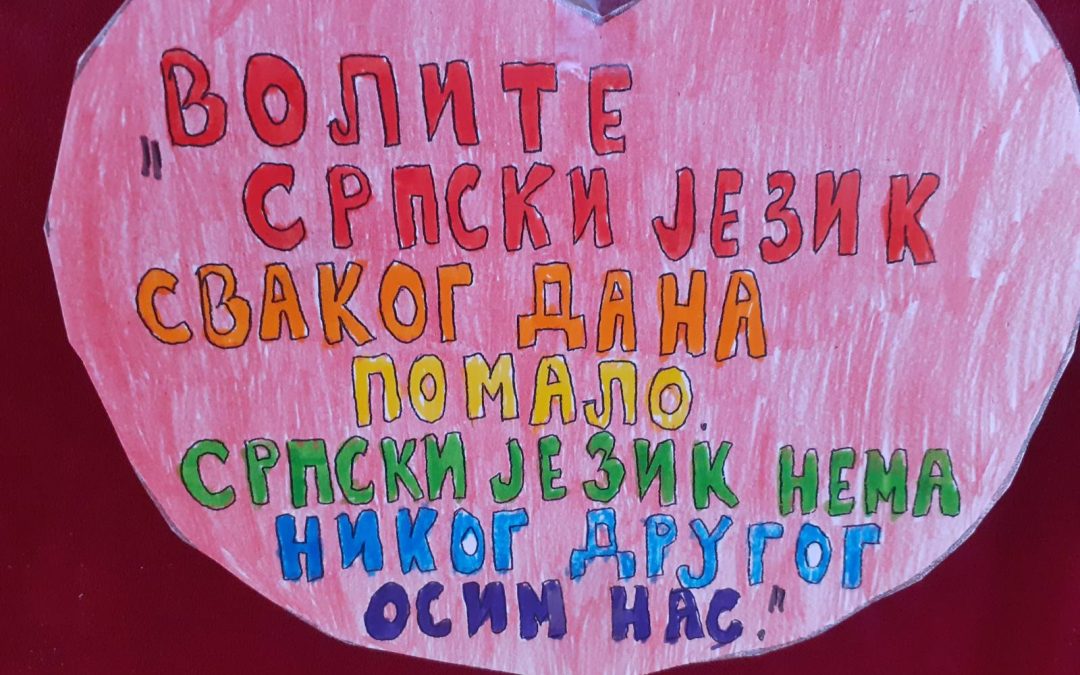 „ВОЛИТЕ
СРПСКИ ЈЕЗИК
СВАКОГ ДАНА
ПОМАЛО.
СРПСКИ ЈЕЗИК НЕМА
НИКОГ ДРУГОГ
ОСИМ НАС."